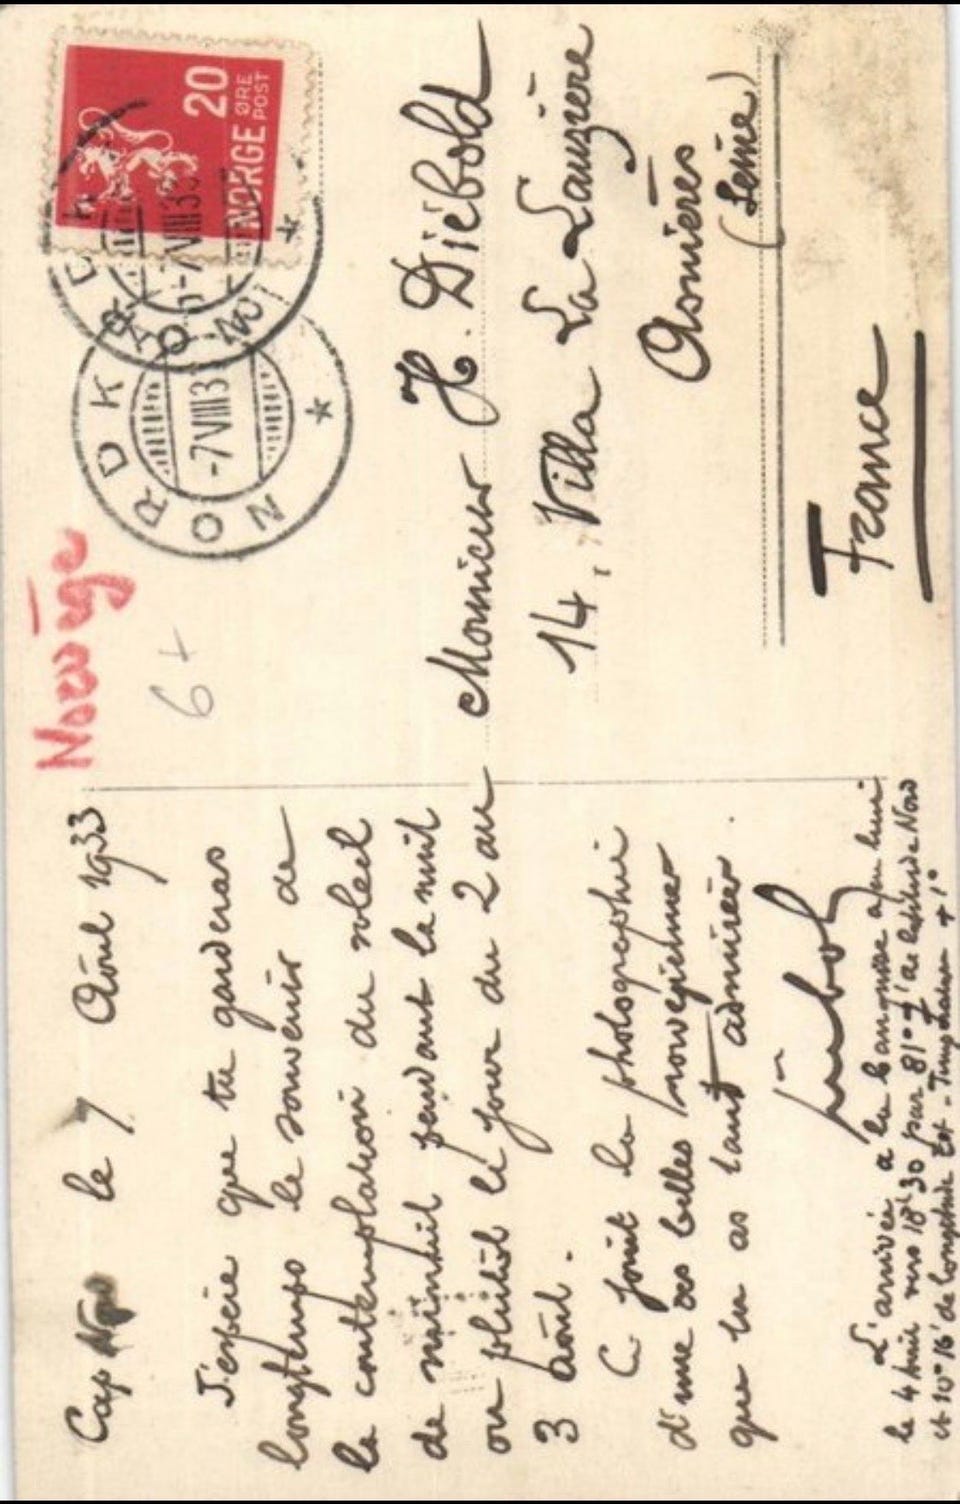 Cap le 7 Août 1933
J'espère que tu garderas
longtemps le souvenir de
la contemplation du soleil
de minuit pendant la nuit
ou plutôt le jour du 2 au
3 août.
Ci joint la photographie
d'une des belles norvégiennes
que tu as tant admirées.
L'arrivée à la banquise a eu lieu
le 4 Août vers 18h30 par 81° de latitude Nord
et 10° 16' de longitude Est - Température + 1°
Norvège
6+
NORDK
-7 VIII 3
NORGE
20
ØRE
POST
Monsieur H. Diebold
14, Villa La Lauzière
Asnières
(Seine)
France